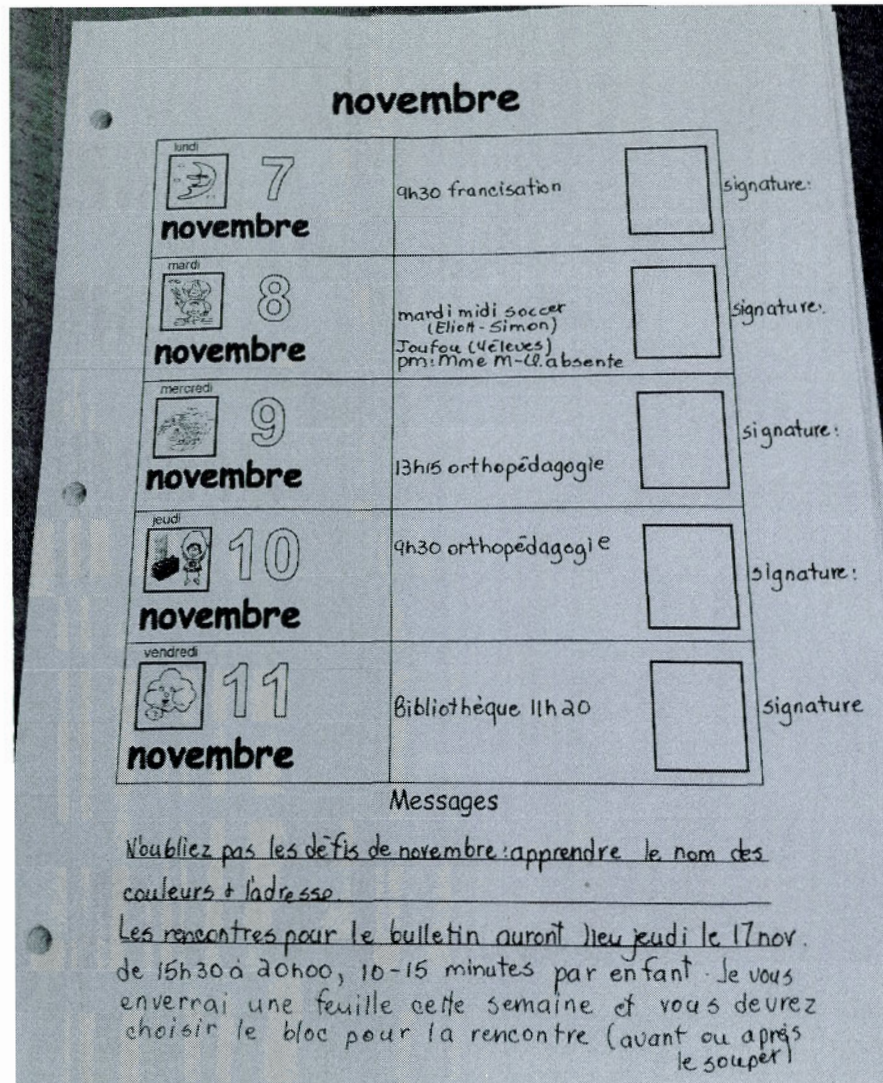 novembre
lundi
7
novembre
9h30 francisation
signature:
mardi
8
novembre
mardi midi soccer
(Eliott-Simon)
Joufou (4élèves)
pm: Mme M-Cl. absente
signature:
mercredi
9
novembre
13h15 orthopédagogie
signature:
jeudi
10
novembre
9h30 orthopédagogie
signature:
vendredi
11
novembre
Bibliothèque 11h20
signature
Messages
N'oubliez pas les défis de novembre: apprendre le nom des
couleurs + l'adresse.
Les rencontres pour le bulletin auront lieu jeudi le 17 nov.
de 15h30 à 20h00, 10-15 minutes par enfant. Je vous
enverrai une feuille cette semaine et vous devrez
choisir le bloc pour la rencontre (avant ou après
le souper)